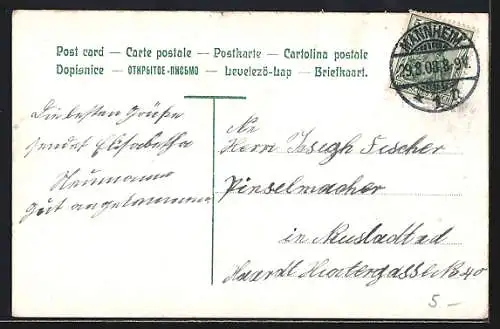 Post card — Carte postale — Postkarte — Cartolina postale
Dopisnice — ОТКРЫТОЕ-ПИСЬМО — Levelező-Lap — Briefkaart.
MANNHEIM
29.8.08.8-9V.
* 1 n
Die besten Grüße
sendet Elisabetha
Neumann
gut angekommen
An
Herrn Joseph Fischer
Pinselmacher
in Neustadt a d
Haardt Hintergasse No 40
5 -